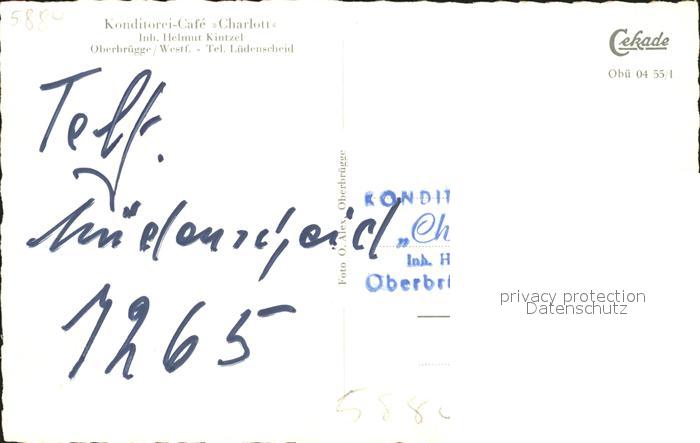 5880
Konditorei-Café »Charlott«
Inh. Helmut Kintzel
Oberbrügge/Westf. - Tel. Lüdenscheid
Telf.
Lüdenscheid
7265
Foto O. Alex, Oberbrügge
Cekade
Obü 04 55/1
KONDIT
„Ch
Inh. H
Oberbrü
privacy protection
Datenschutz
588